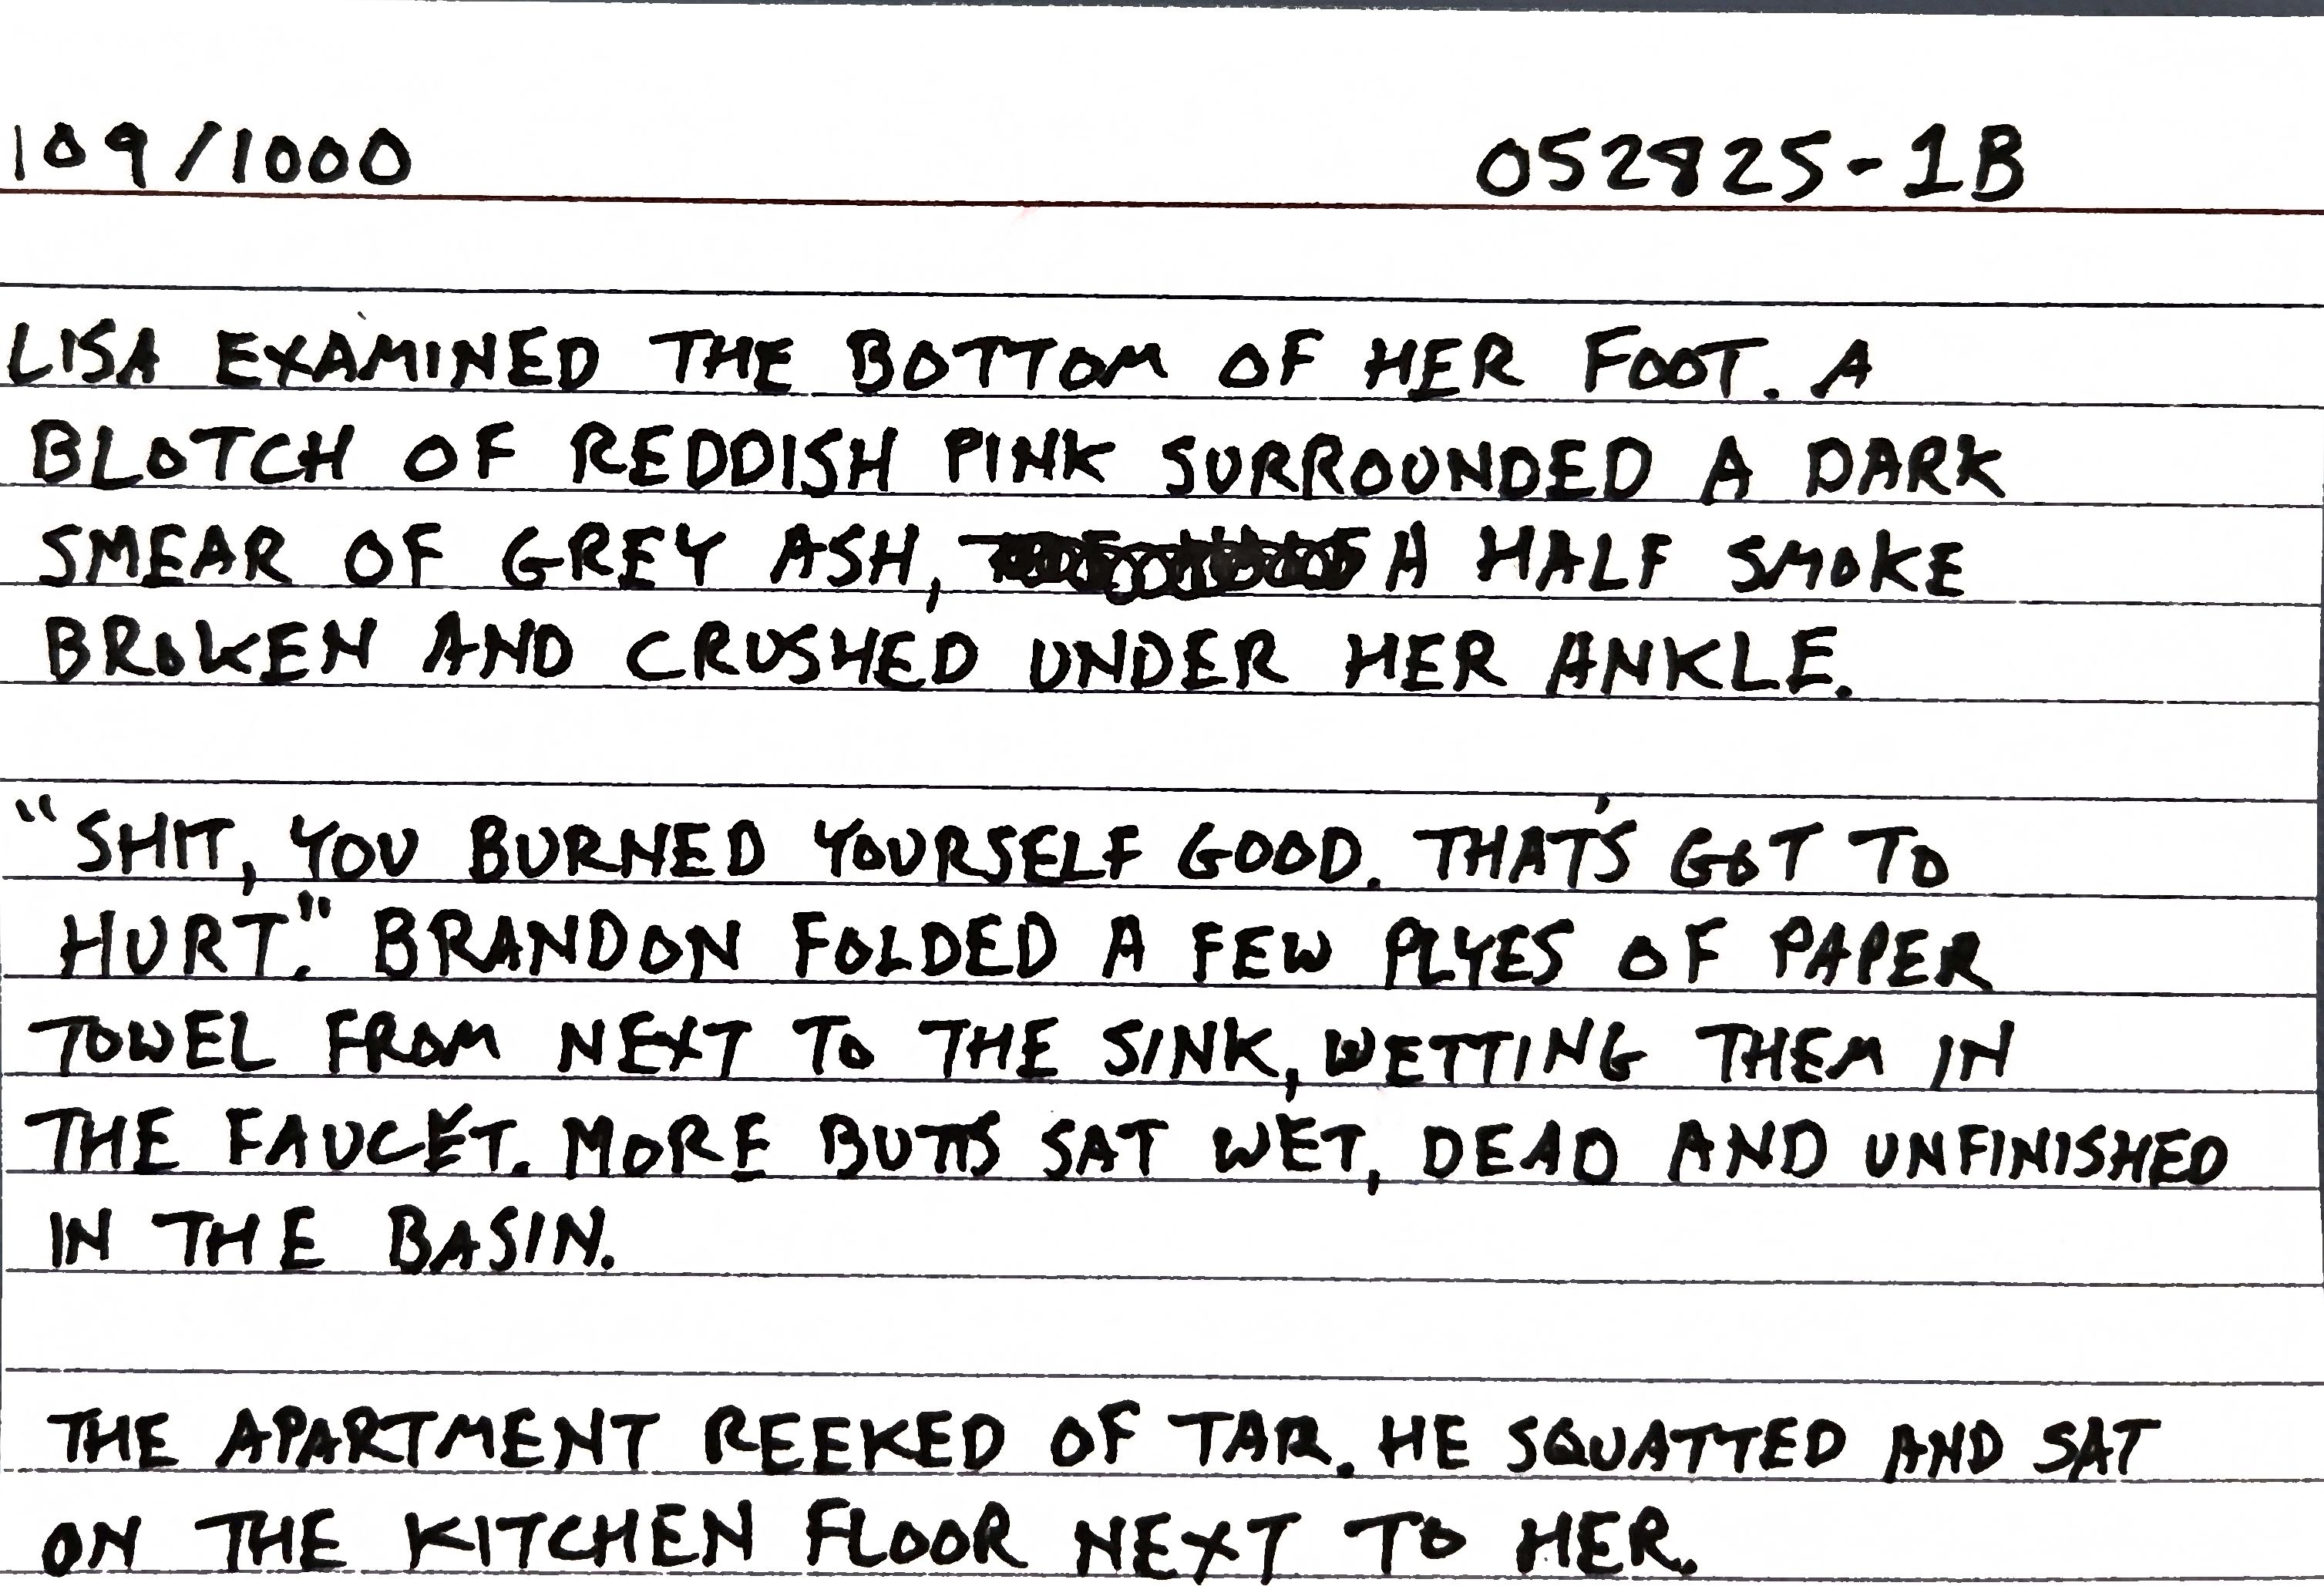 109/1000 052825-1B
LISA EXAMINED THE BOTTOM OF HER FOOT. A
BLOTCH OF REDDISH PINK SURROUNDED A DARK
SMEAR OF GREY ASH, A HALF SMOKE
BROKEN AND CRUSHED UNDER HER ANKLE.
"SHIT, YOU BURNED YOURSELF GOOD. THAT'S GOT TO
HURT." BRANDON FOLDED A FEW PLYES OF PAPER
TOWEL FROM NEXT TO THE SINK, WETTING THEM IN
THE FAUCET. MORE BUTTS SAT WET, DEAD AND UNFINISHED
IN THE BASIN.
THE APARTMENT REEKED OF TAR. HE SQUATTED AND SAT
ON THE KITCHEN FLOOR NEXT TO HER.